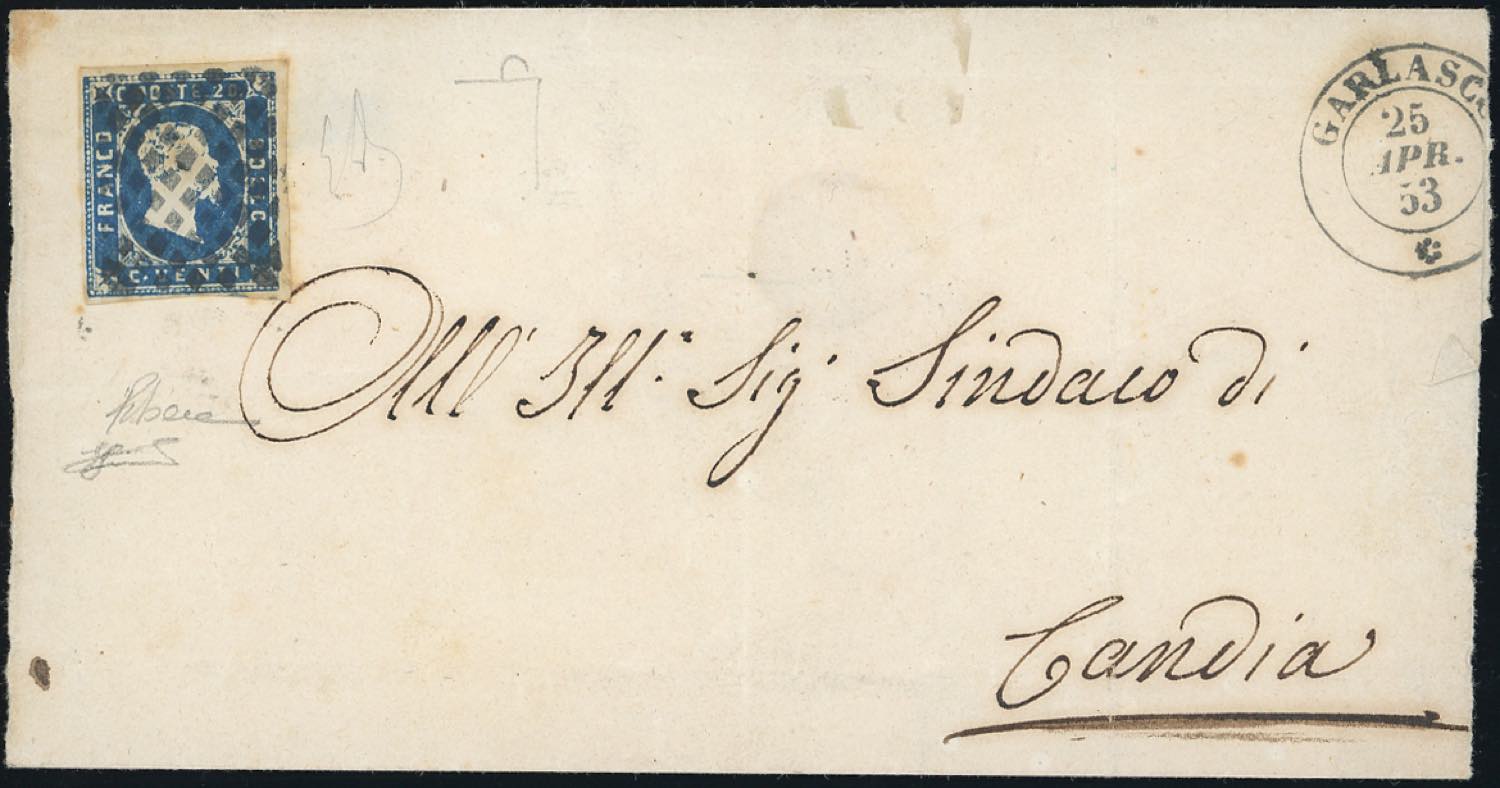 C. POSTE 20.
FRANCO
BOLLO
C. VENTI
GARLASCO
25
APR.
53
All' Ill.º Sig.r Sindaco di
Candia